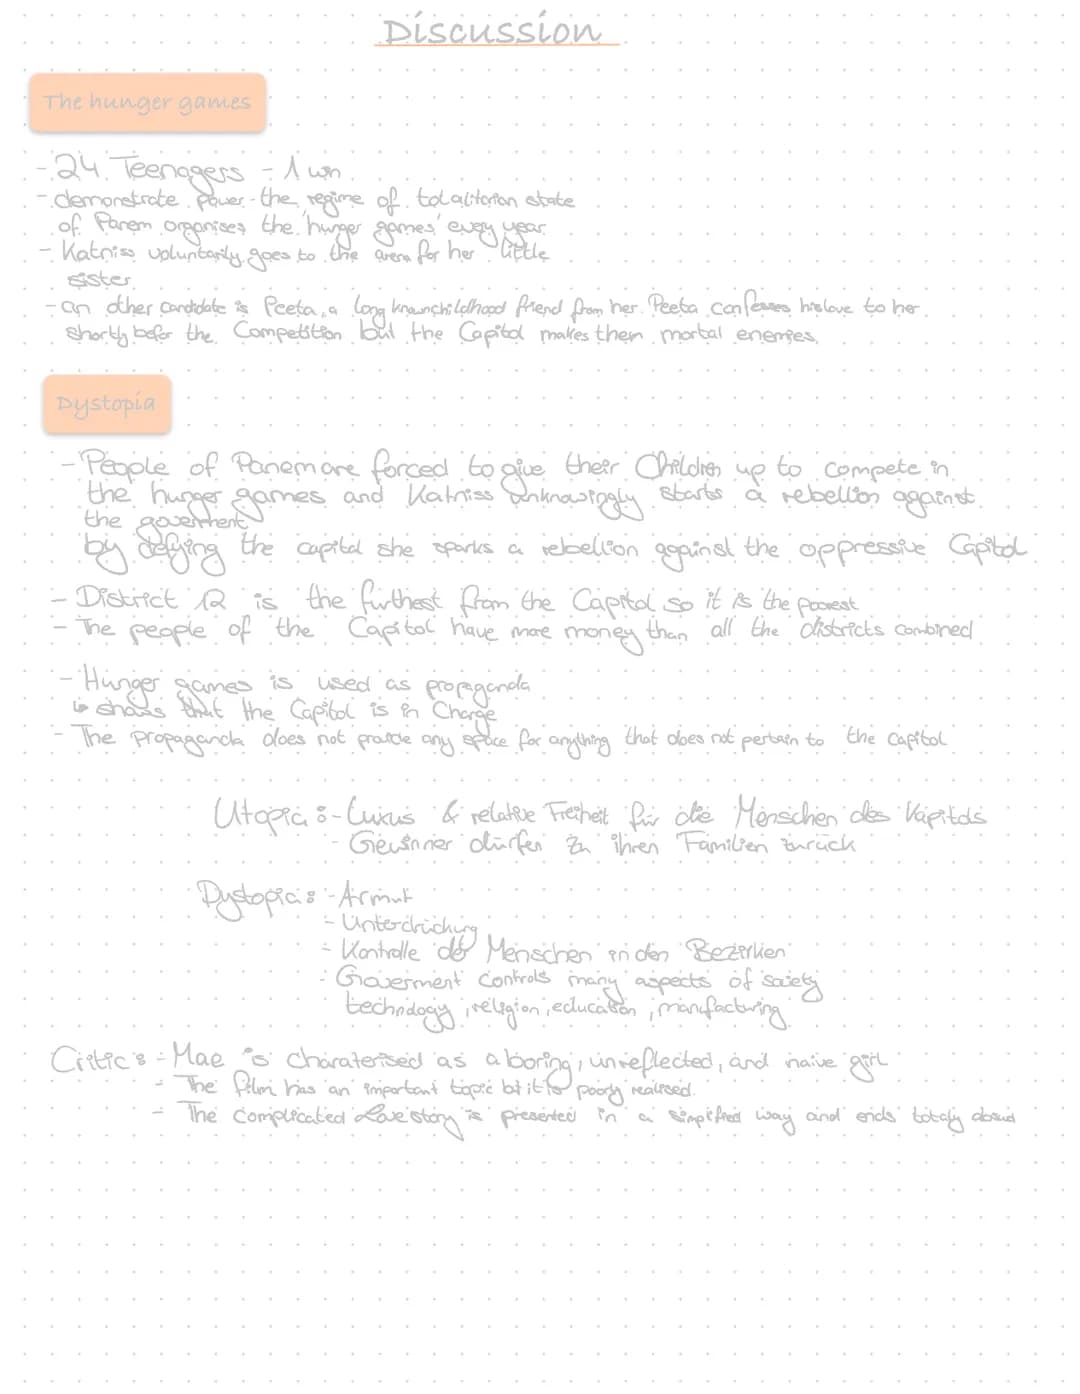 Discussion
The hunger games
- 24 Teenagers - 1 win
- demonstrate power - the regime of totalitarian state
of Panem organises the 'hunger games' every year
- Katniss voluntarily goes to the arena for her little
sister
- an other candidate is Peeta, a long known childhood friend from her. Peeta confesses his love to her
shortly befor the Competition but the Capitol makes them mortal enemies.
Dystopia
- People of Panem are forced to give their Children up to compete in
the hunger games and Katniss unknowingly starts a rebellion against
the goverment
by defying the capitol she sparks a rebellion against the oppressive Capitol
- District 12 is the furthest from the Capitol so it is the poorest
- The people of the Capitol have more money than all the districts combined
- Hunger games is used as propaganda
↳ shows that the Capitol is in Charge
- The propaganda does not provide any space for anything that does not pertain to the capitol
Utopia: - Luxus & relative Freiheit für die Menschen des Kapitols
- Gewinner dürfen zu ihren Familien zurück
Dystopia: - Armut
- Unterdrückung
- Kontrolle der Menschen in den Bezirken
- Goverment controls many aspects of society
technology, religion, education, manufacturing
Critic: - Mae is charaterised as a boring, unreflected, and naive girl
- The film has an important topic but it is poorly realised.
- The complicated Love story is presented in a simplified way and ends totaly absurd